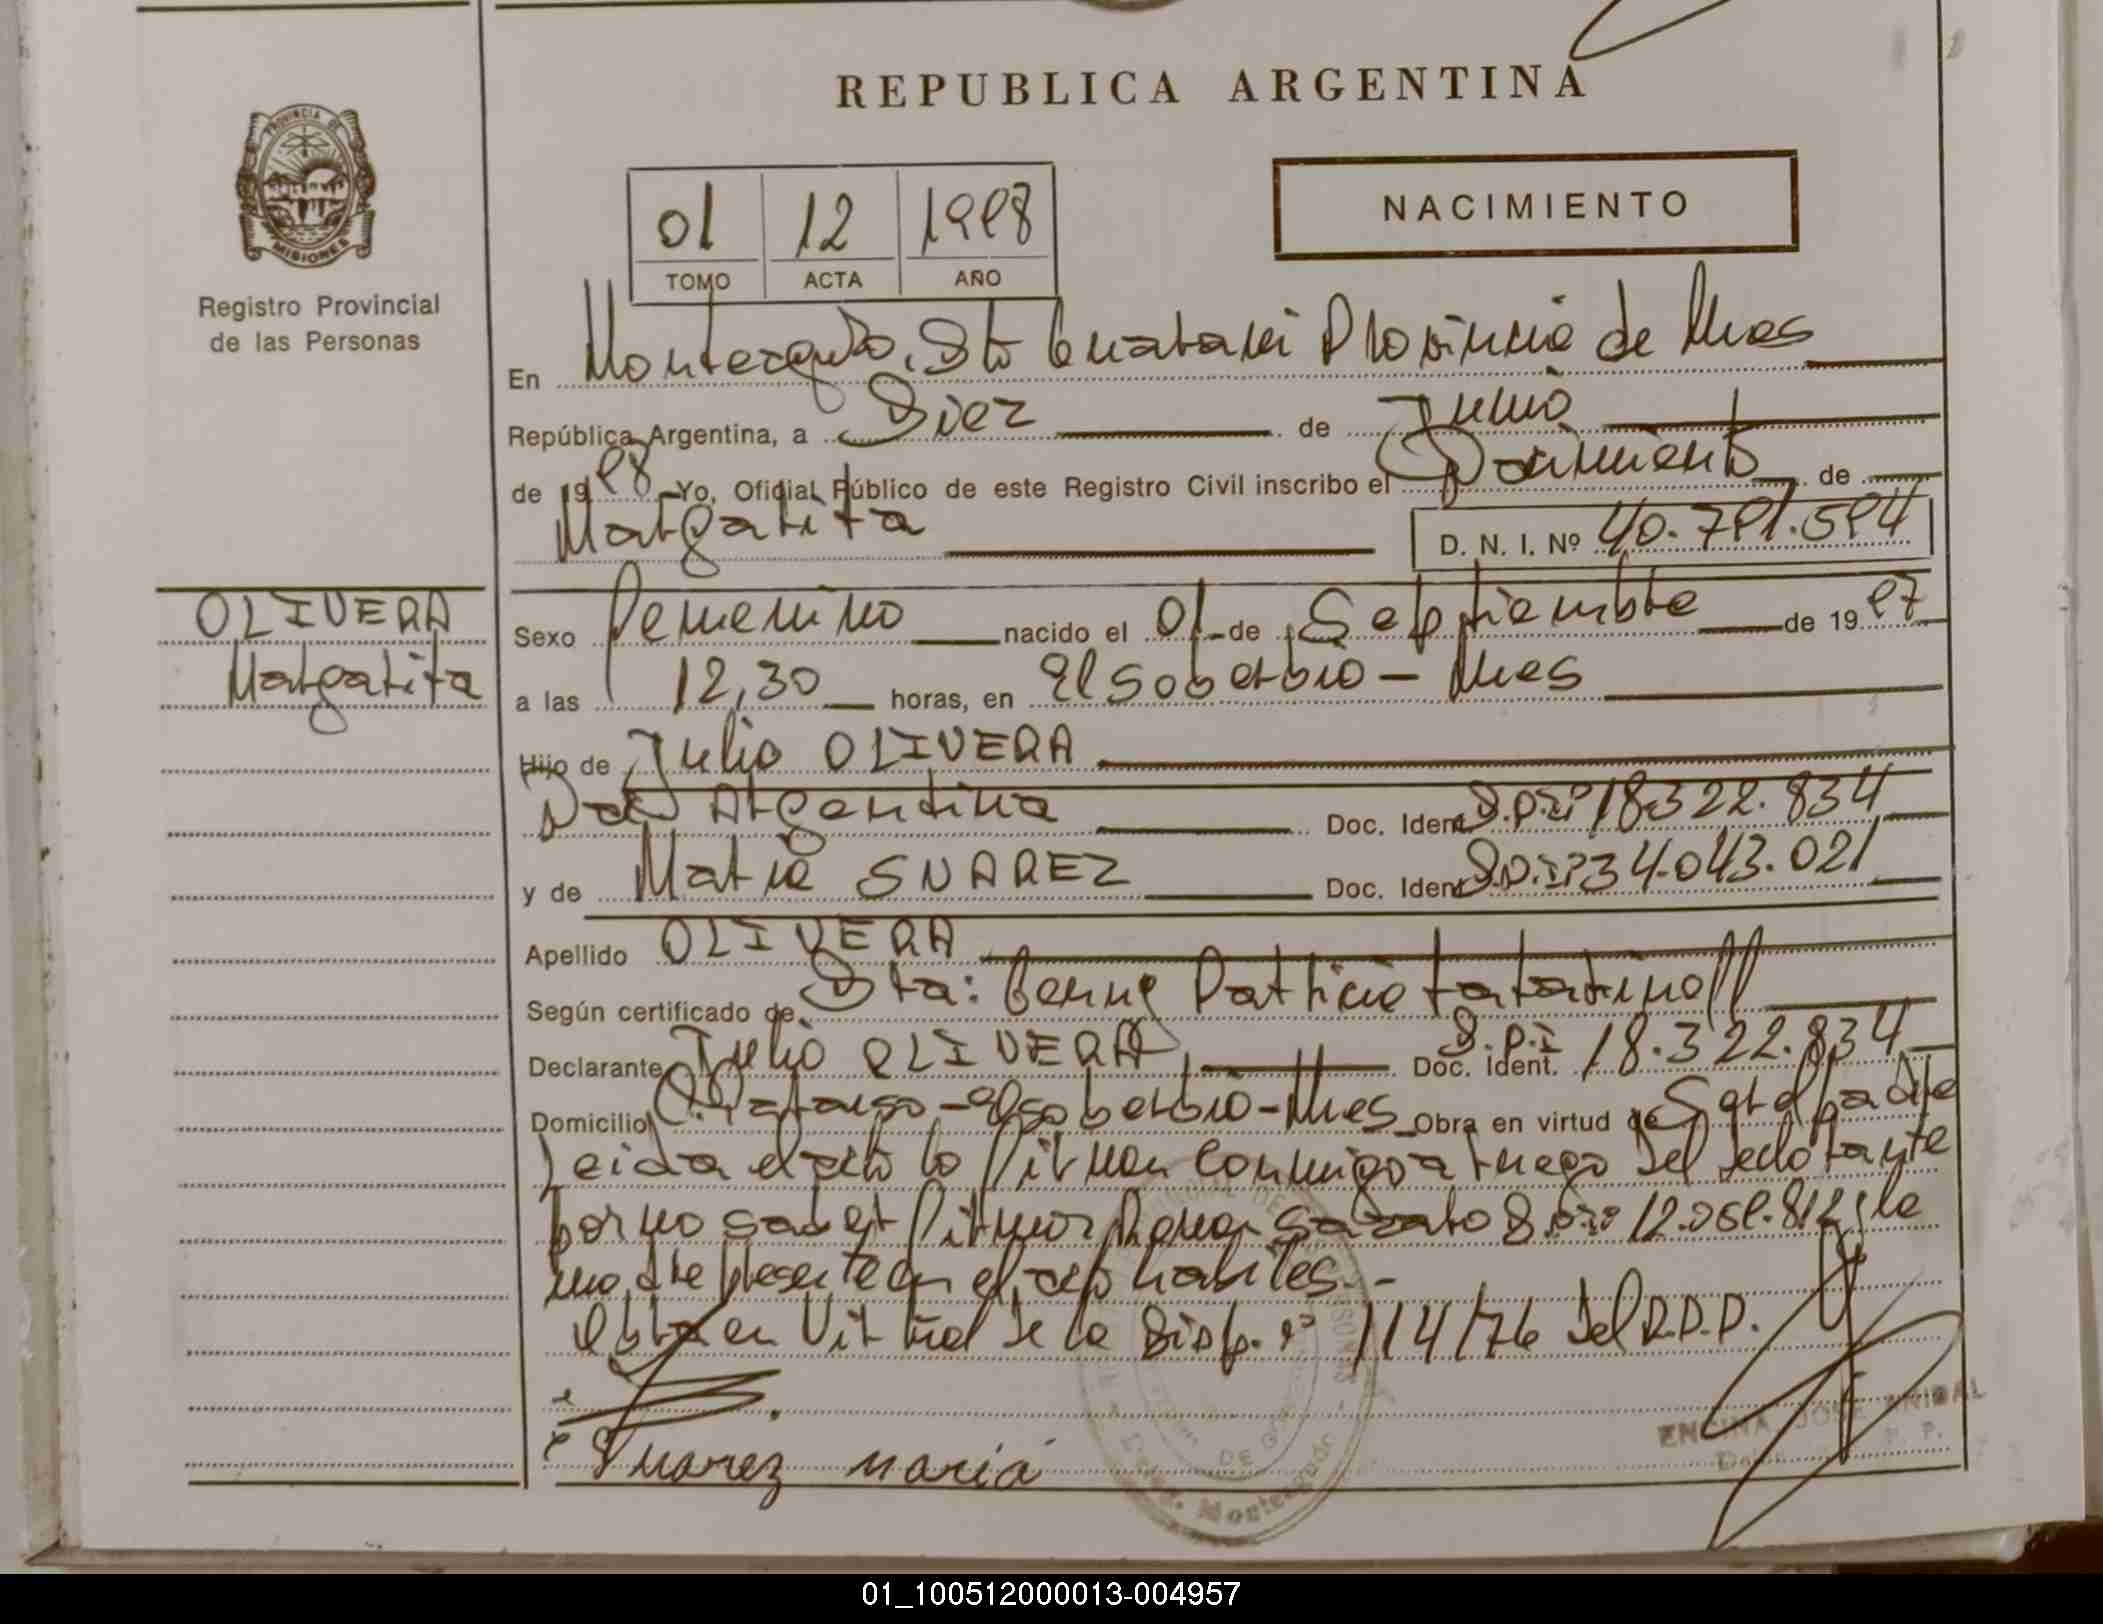 REPUBLICA ARGENTINA
PROVINCIA DE
MISIONES
Registro Provincial
de las Personas
01 12 1998
TOMO ACTA AÑO
NACIMIENTO
En Monteagudo, Dto Guarani Provincia de Mnes
República Argentina, a Diez de Julio
de 19 98 Yo, Oficial Público de este Registro Civil inscribo el Nacimiento de
Margarita
D. N. I. Nº 40.791.594
OLIVERA
Margarita
Sexo Femenino nacido el 01 de Septiembre de 19 97
a las 12,30 horas, en El Soberbio - Mnes
Hijo de Julio OLIVERA
Nac Argentina Doc. Ident D.N.I. 18.322.834
y de Maria SUAREZ Doc. Ident D.N.I. 34.043.021
Apellido OLIVERA
Según certificado de Dra:
Declarante Julio OLIVERA Doc. Ident. D.N.I 18.322.834
Domicilio El Soberbio - Mnes Obra en virtud de Ser el padre
Leida el acta la firman conmigo a ruego del declarante
por no saber firmar D.N.I. la
madre presente en el acto
Obra en Virtud de la Disp. nº 114/76 del R.P.P.
Suarez maria
ENCINA JOSE ANIBAL
Monteagudo
01_100512000013-004957